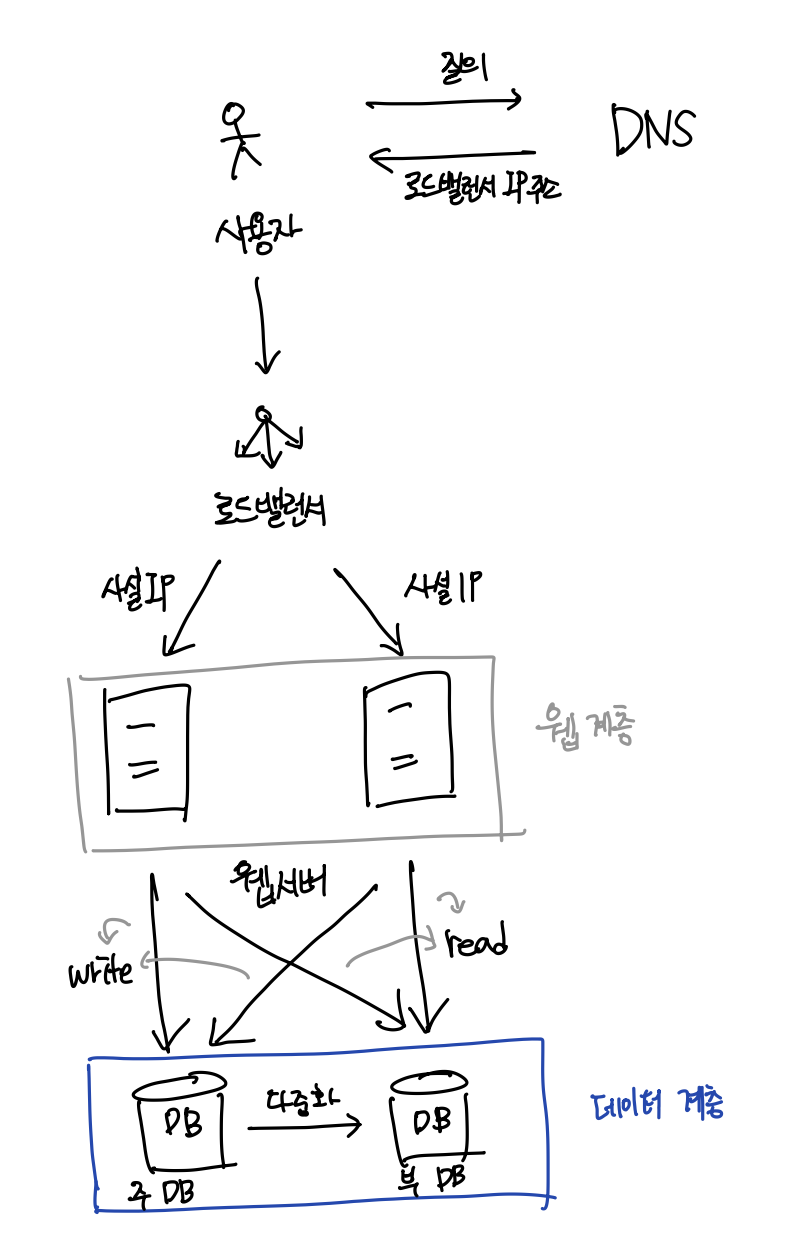 질의
DNS
로드밸런서 IP주소
사용자
로드밸런서
사설IP
사설IP
웹 계층
웹서버
write
read
DB
다중화
DB
데이터 계층
주 DB
부 DB